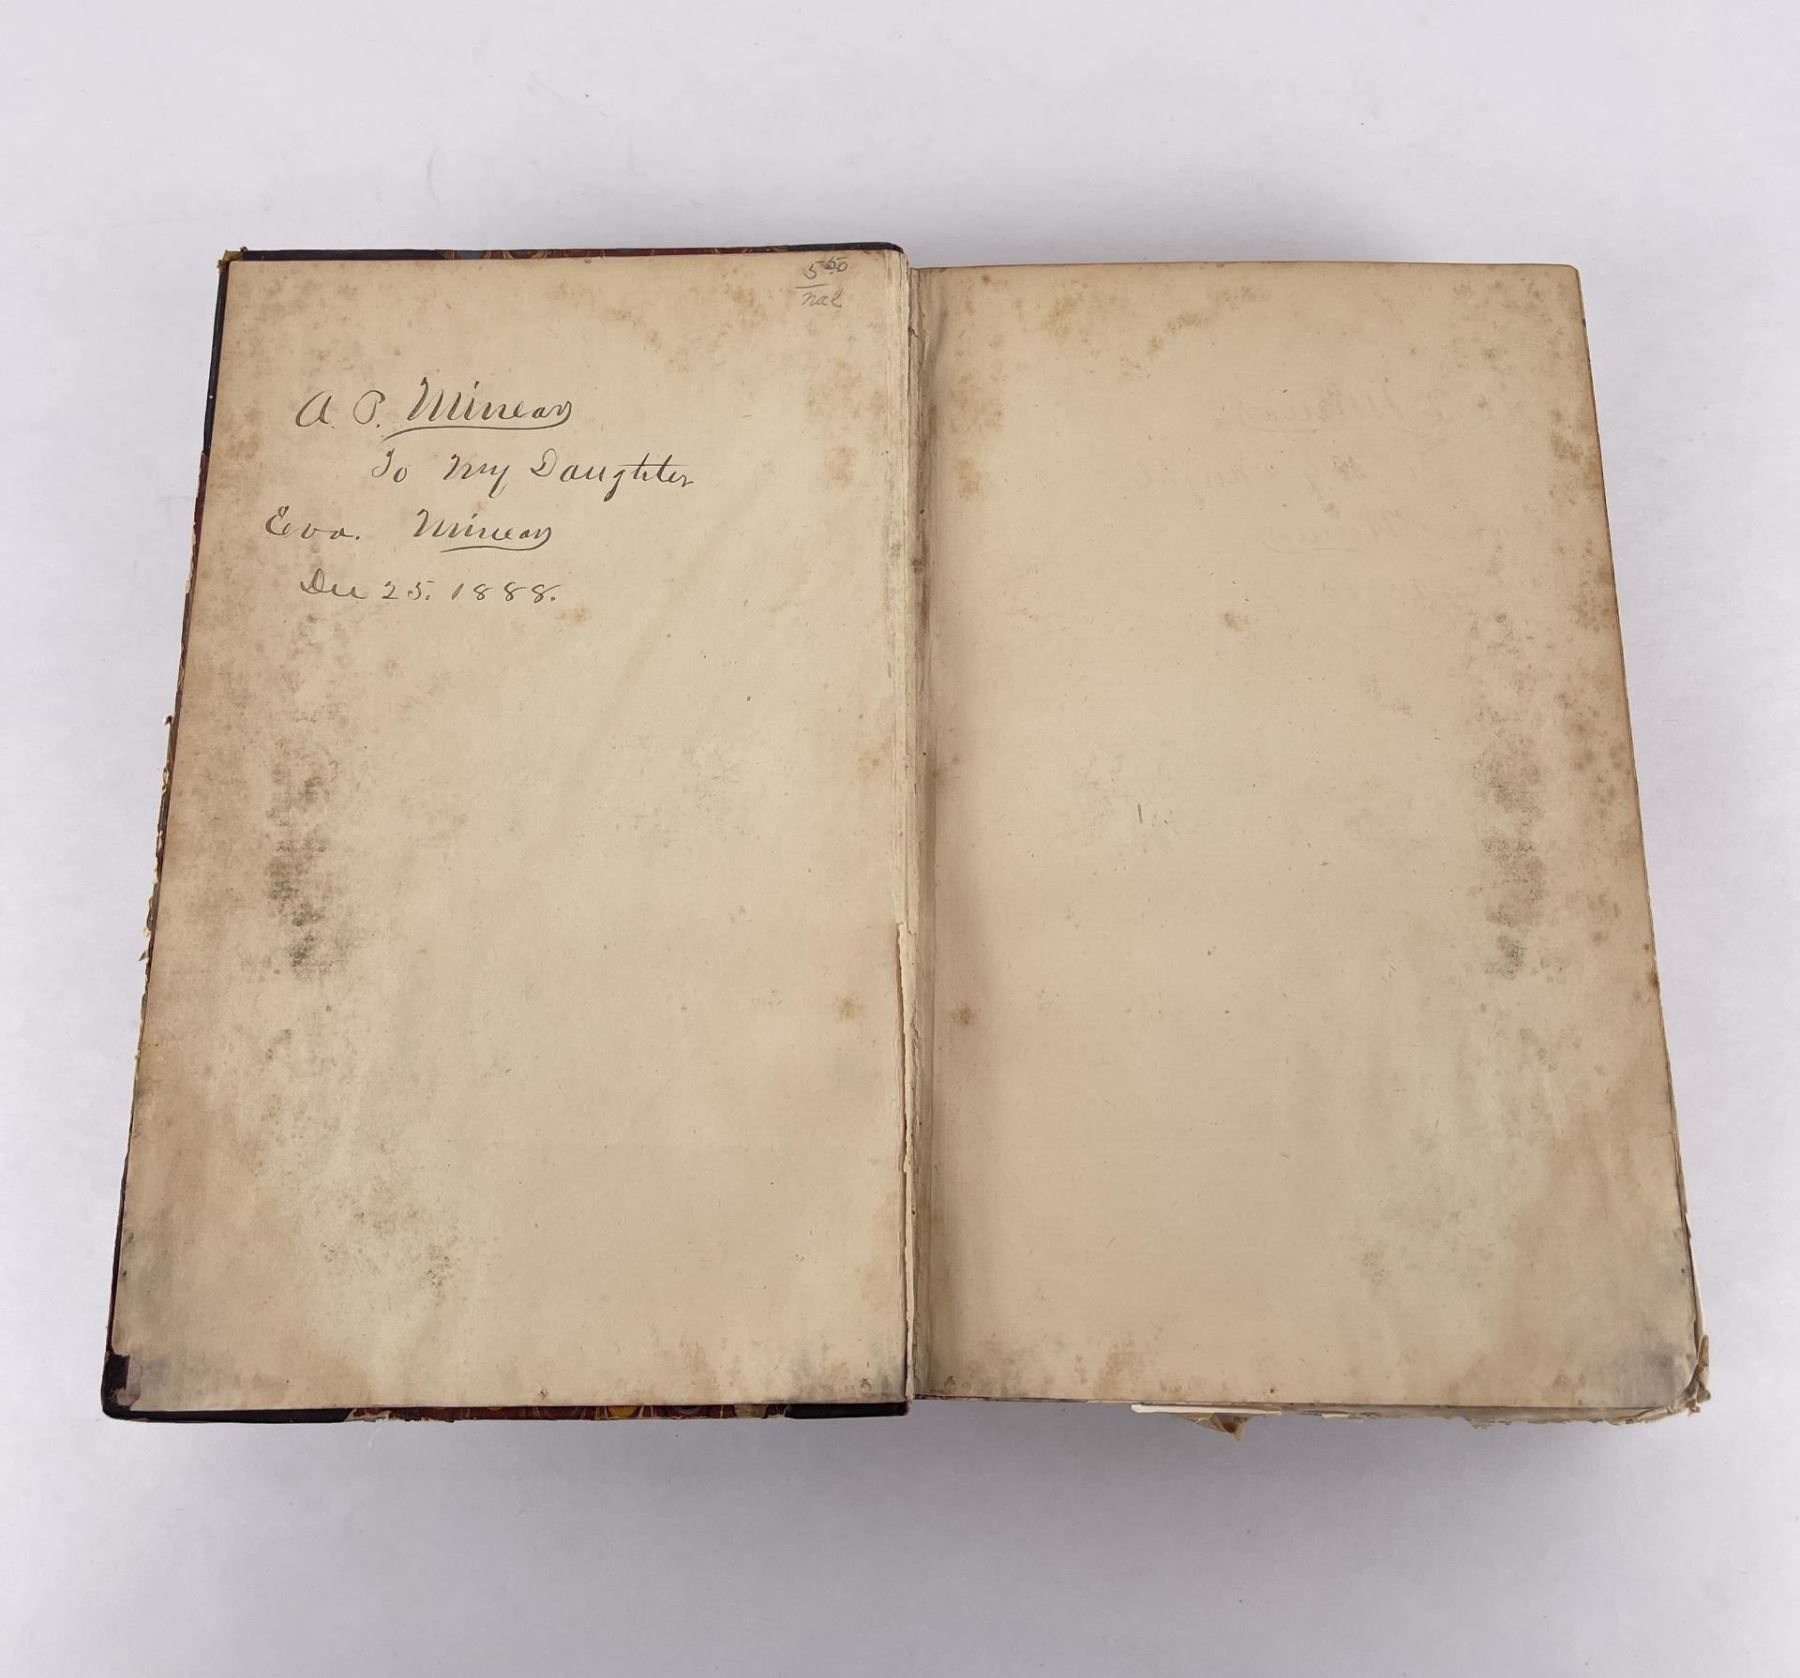 5 50
A. P. Minear
To My Daughter
Eva. Minear
Dec 25. 1888.